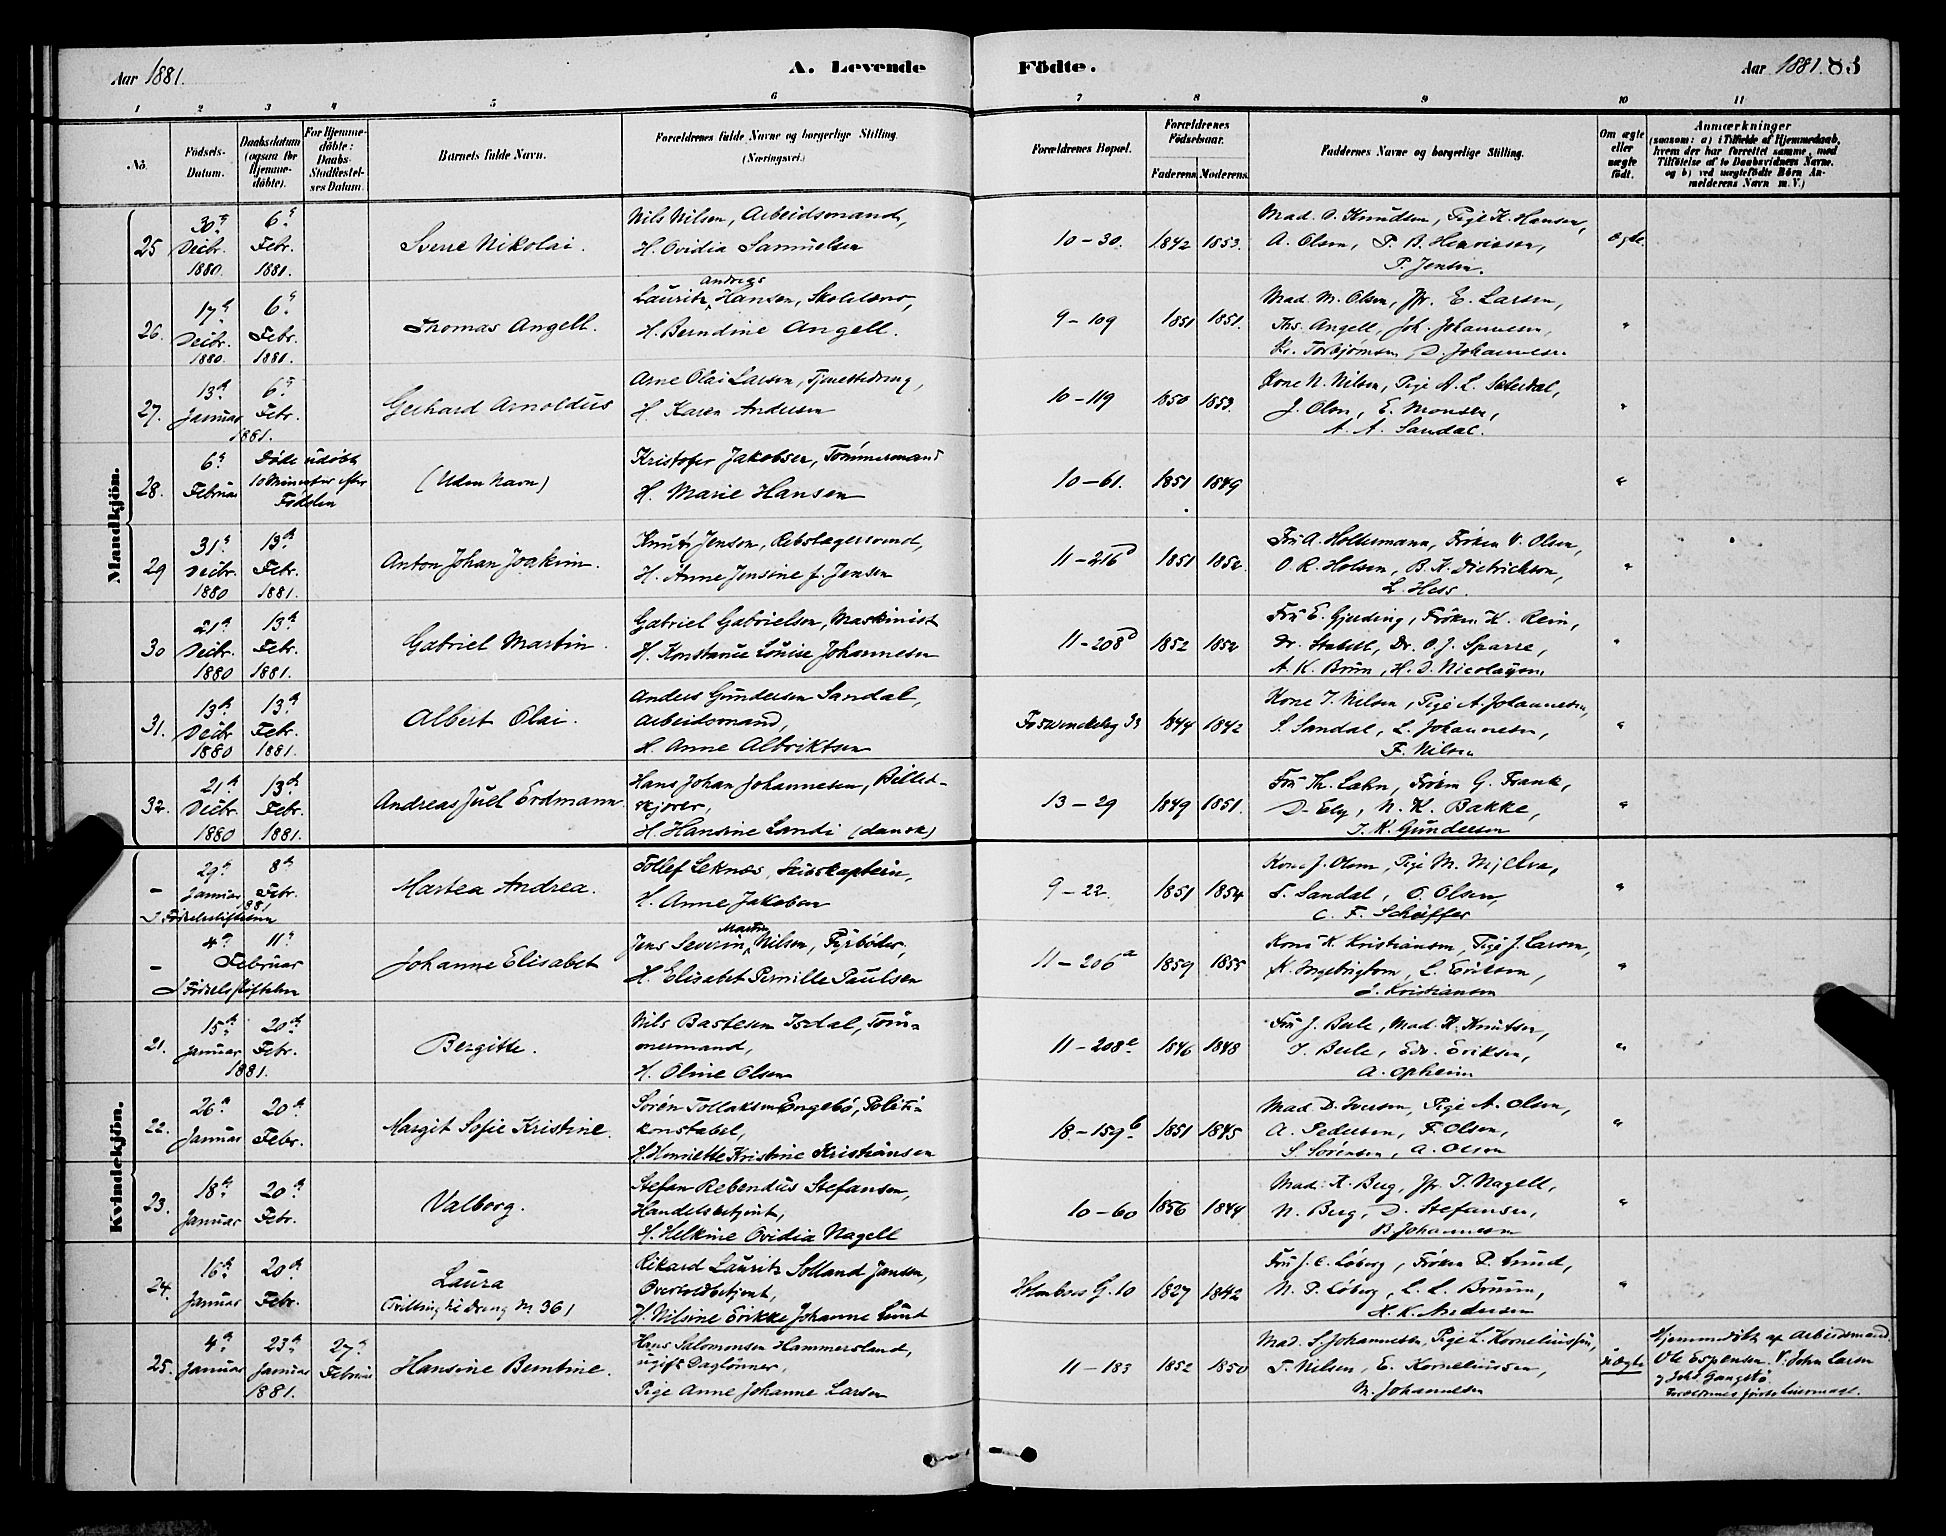 Aar 1881. A. Levende Födte. Aar 1881. 83
1 2 3 4 5 6 7 8 9 10 11
No. Födsels-Datum. Daabsdatum (ogsaa for Hjemmedöbte). For Hjemmedöbte: Daabs-Stadfæstelses Datum. Barnets fulde Navn. Forældrenes fulde Navne og borgerlige Stilling. (Næringsvei.) Forældrenes Bopæl. Forældrenes Födselsaar. Faderens Moderens Faddernes Navne og borgerlige Stilling. Om ægte eller uægte födt. Anmærkninger (saasom: a) i Tilfælde af Hjemmedaab, hvem der har forrettet samme, med Tilföielse af to Daabsvidners Navne. og b) ved uægtefödte Börn Anmelderens Navn m. V.)
Mandkjön.
25 30 Decbr. 1880. 6 Febr. 1881. Sverre Nikolai.
Nils Nilsen, Arbeidsmand,
H. Ovidia Samuelsen
10-30. 1842 1853.
Mad. O. Knudsen, Pige K. Hansen,
A. Olsen, P. B. Henriksen,
P. Jensen.
ægte.
26. 17 Decbr. 1880. 6 Febr. 1881. Thomas Angell.
Lauritz Andreas Hansen, Skolelærer,
H. Berndine Angell.
9-109 1851 1851.
Mad. M. Olsen, Jfr. E. Larsen,
Ths. Angell, Joh. Johannesen,
Kr. Torbjørnsen, D. Johannesen
"
27. 13 Januar 6 Febr. 1881. Gerhard Arnoldus
Arne Olai Larsen, Tjenestedreng,
H. Karen Andersen
10-119 1850 1853.
Kone N. Nilsen, Pige A. L. Seterdal,
J. Olsen, E. Monsen,
A. A. Sandal.
"
28. 6 Februar Døde udøbt 10 Minuter efter Fødslen (Uden Navn)
Kristofer Jakobsen, Tømmermand
H. Marie Hansen
10-61. 1851 1849
"
29 31 Decbr. 1880 13 Febr. 1881. Anton Johan Joakim.
Knut Jensen, Rebslagersvend,
H. Anne Jensine f. Jensen
11-216 d 1851 1852.
Fru A. Holtermann, Frøken V. Olsen,
O. R. Holsen, B. K. Dietrichson,
L. Hess.
"
30 21 Decbr. 1880 13 Febr. 1881. Gabriel Martin.
Gabriel Gabrielsen, Maskinist
H. Konstance Louise Johannesen
11-208 d 1852 1852
Fru E. Gjerding, Frøken K. Rein,
Dr. Stabell, Dr. O. J. Sparre,
A. K. Brun, H. D. Nicolaysen.
"
31. 13 Decbr. 1880 13 Febr. 1881. Albert Olai.
Anders Gundersen Sandal,
Arbeidsmand,
H. Anne Albriktsen
33 1844 1842
Kone I. Nilsen, Pige A. Johannesen,
S. Sandal, L. Johannesen,
F. Nilsen
"
32. 21 Decbr. 1880 13 Febr. 1881. Andreas Juel Erdmann.
Hans Johan Johannesen, Billed-
skjærer,
H. Hansine Landi (dansk)
13-29 1849 1851.
Fru Th. Lahn, Frøken G. Frank,
D. Ely, N. K. Bakke,
J. K. Gundersen
"
Kvindekjön.
- 29 Januar 8 Febr. 1881 I Fødselsstiftelsen Martea Andrea.
Tollef Leknes, Skibskaptein,
H. Anne Jakobsen
9-22. 1851 1854
Kone J. Olsen, Pige M. Mjelva,
S. Sandal, O. Olsen,
C. F. Schäffer
"
- 4 11 Februar I Fødselsstiftelsen Johanne Elisabet
Jens Severin Martin Nilsen, Fyrbøder,
H. Elisabet Pernille Paulsen
11-206 a 1859 1855
Kone K. Kristiansen, Pige J. Larsen,
K. Ingebrigtsen, L. Eriksen,
J. Kristiansen
"
21. 15 Januar 20 Febr. 1881. Bergitte.
Nils Bastesen Isdal, Tøm-
mermand,
H. Oline Olsen
11-208 e 1846 1848
Fru J. Bele, Mad. K. Knutsen,
T. Bele, Edv. Eriksen,
A. Opheim
"
22. 26 Januar 20 Febr. Margit Sofie Kristine.
Søren Tollaksen Engebø, Politi-
konstabel,
H. Henriette Kristine Kristiansen
18-159 b 1851 1845
Mad. D. Iversen, Pige A. Olsen,
A. Pedersen, F. Olsen,
S. Sørensen, A. Olsen
"
23. 18 Januar 20 Febr. Valborg.
Stefan Rebendus Stefansen,
Handelsbetjent,
H. Helkine Ovidia Nagell
10-60 1856 1844
Mad. K. Berg, Jfr. T. Nagell,
N. Berg, D. Stefansen,
B. Johannesen
"
24. 16 Januar 20 Febr. Laura
Tvilling til dreng N 36)
Rikard Lauritz Solland Jansen,
Overtoldbetjent,
H. Nilsine Erikke Johanne Lund
Holmboes G. 10 1827 1842
Fru J. C. Løberg, Frøken P. Lund,
N. P. Løberg, L. L. Bruun,
H. K. Andersen
"
25. 4 Januar 23 Januar 1881. 27 Februar Hansine Berntine.
Hans Salomonsen Hammersland,
ugift Dagløner,
Pige Anne Johanne Larsen
11-183 1852 1850
Mad. S. Johannesen, Pige L. Korneliussen,
T. Nilsen, E. Korneliussen,
M. Johannesen
uægte
Hjemmedøbt af Arbeidsmand
Ole Espensen. V. John Larsen
og Johs Gangstø.
Forældrenes første Leiermaal.